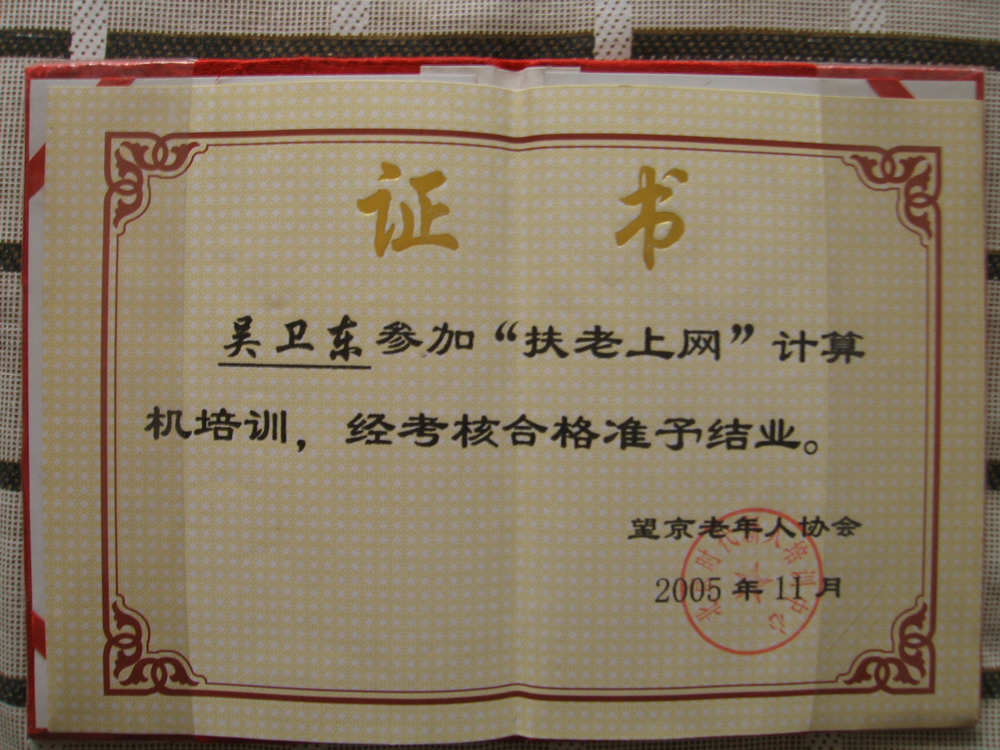 证书
吴卫东参加“扶老上网”计算
机培训，经考核合格准予结业。
望京老年人协会
2005年11月
时代新人培训中心